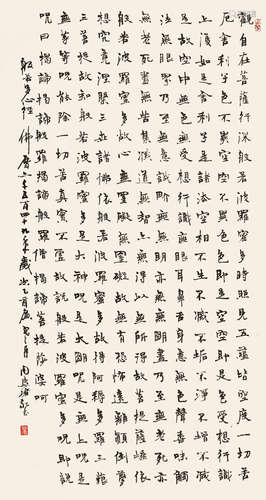 觀自在菩薩行深般若波羅蜜多時照見五蘊皆空度一切苦
厄舍利子色不異空空不異色色即是空空即是色受想行識
亦復如是舍利子是諸法空相不生不滅不垢不淨不增不減
是故空中無色無受想行識無眼耳鼻舌身意無色聲香味觸
法無眼界乃至無意識界無無明亦無無明盡乃至無老死亦
無老死盡無苦集滅道無智亦無得以無所得故菩提薩埵依
般若波羅蜜多故心無罣礙無罣礙故無有恐怖遠離顛倒夢
想究竟涅槃三世諸佛依般若波羅蜜多故得阿耨多羅三藐
三菩提故知般若波羅蜜多是大神咒是大明咒是無上咒是
無等等咒能除一切苦真實不虛故說般若波羅蜜多咒即說
咒曰揭諦揭諦般羅揭諦般羅僧揭諦菩提薩婆訶
般若多心經 佛曆二千五百四十九年歲次乙酉